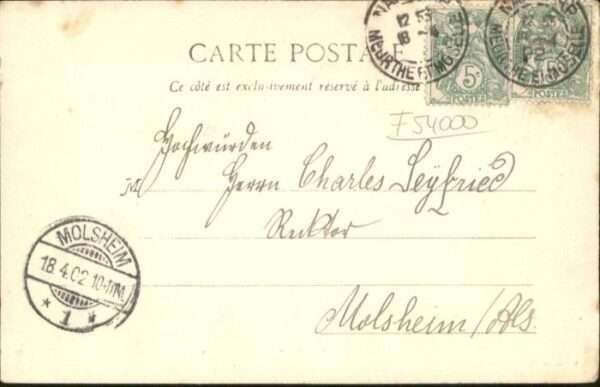 CARTE POSTALE
Ce côté est exclusivement réservé à l'adresse
5c
POSTES
POSTES
MEURTHE ET MOSELLE
MEURTHE ET MOSELLE
F54000
Hochwürden
Herrn Charles Seyfried
Rektor
Molsheim/Als.
MOLSHEIM
18.4.02.10-11N.
* 1 *